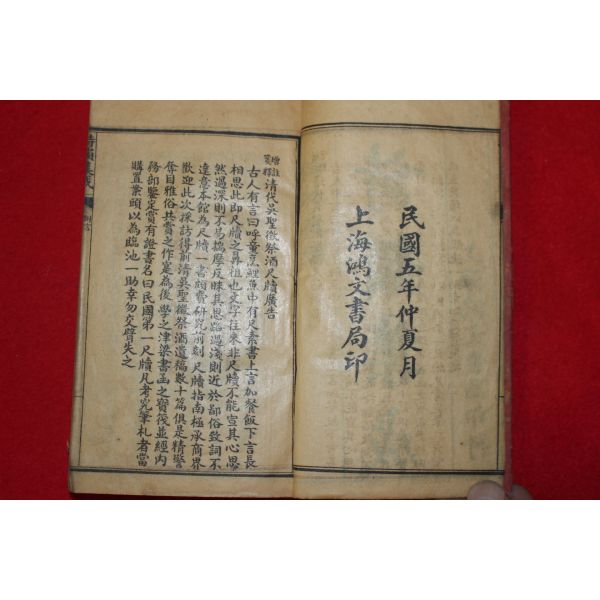 民國五年仲夏月
上海鴻文書局印
增註箋釋清代吳聖徵祭酒尺牘廣告
古人有言曰呼童烹鯉魚中有尺素書上言加餐飯下言長
相思此即尺牘之鼻祖也文字往來非尺牘不能宣其心思
然過深則不易揣摩反昧其思路過淺則近於鄙俗致詞不
達意本館為尺牘一書頗費研究前刻尺牘指南極承商界
歡迎此次採訪得前清吳聖徵祭酒遺稿數十篇俱是精警
奪目雅俗共賞之作寔為後學之津梁書函之寶筏並經內
務部鑒定賞有證書名曰民國第一尺牘凡考究筆札者當
購置案頭以為臨池一助幸勿交臂失之